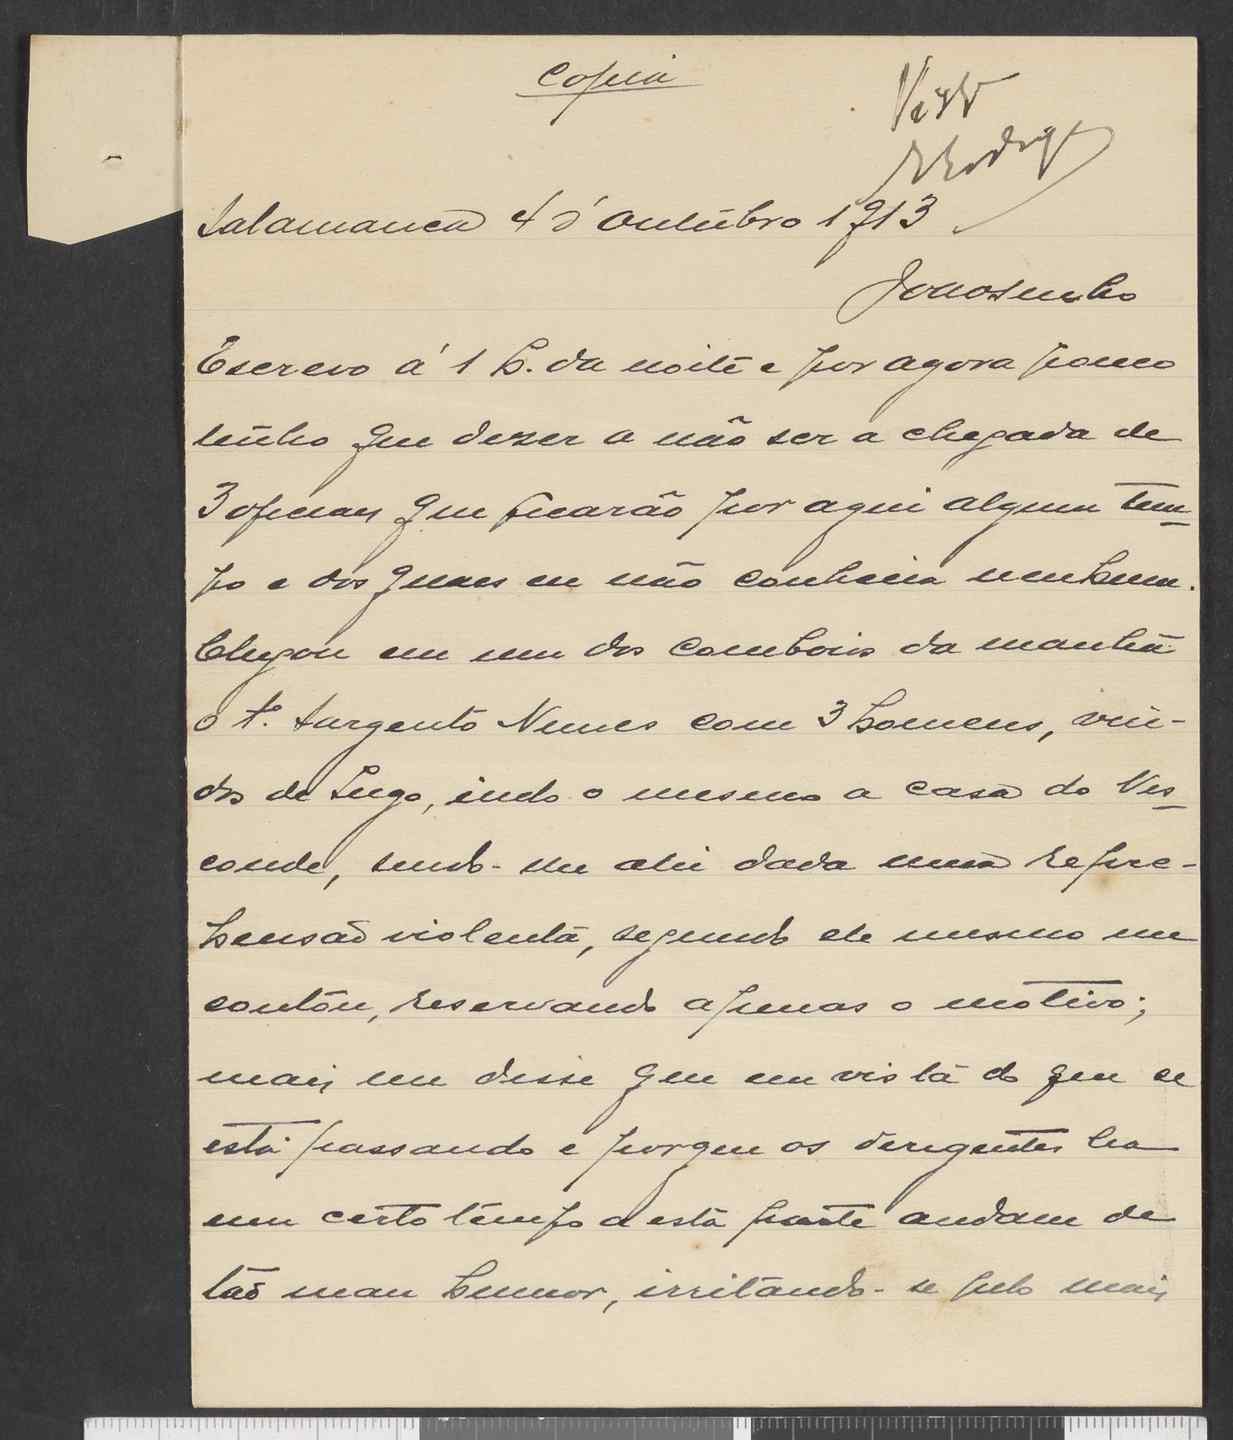 Copia
Visto
Salamanca 4 d'Outubro 1913
Joaosinho
Escrevo á 1 h. da noite e por agora pouco
tenho que dezer a não ser a chegada de
3 oficiais que ficarão por aqui algum tem-
po e dos quaes eu não conhecia nenhum.
Chegou em um dos comboios da manhã
o 1º. Sargento Nunes com 3 homens, vin-
dos de Lugo, indo o mesmo a casa do Vis-
conde, sendo-lhe ahi dada uma repre-
hensão violenta, segundo ele mesmo me
contou, reservando apenas o motivo;
mais me disse que em vista do que se
está passando e porque os derigentes ha
um certo tempo a esta parte andam de
tão mau humor, irritando-se pelo mais